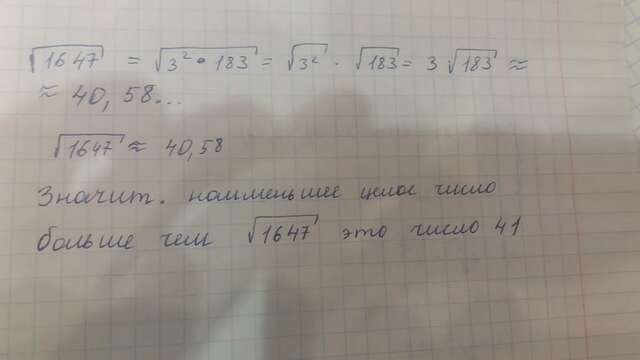 √1647 = √3² • 183 = √3² · √183 = 3 √183 ≈
≈ 40,58...
√1647 ≈ 40,58
Значит. наименьшее целое число
больше чем √1647 это число 41